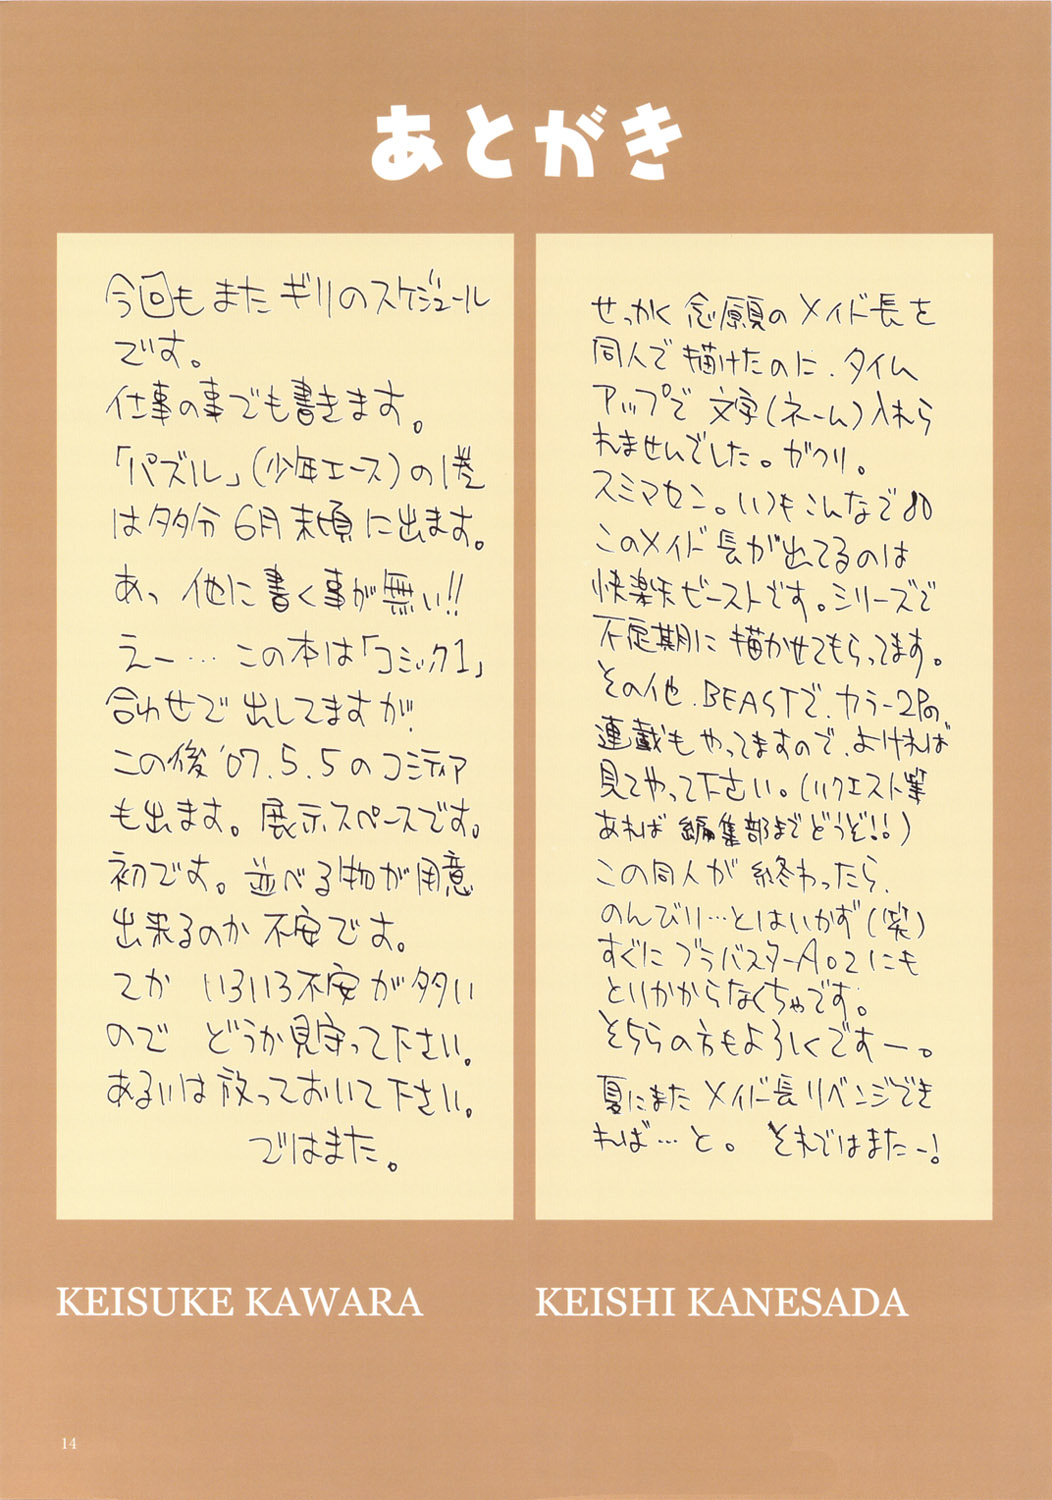 あとがき
今回もまたギリのスケジュール
です。
仕事の事でも書きます。
「パズル」(少年エース)の1巻
は多分6月末頃に出ます。
あっ 他に書く事が無い!!
えー… この本は「コミック1」
合わせで出してますが
この後'07.5.5のコミティア
も出ます。展示スペースです。
初です。並べる物が用意
出来るのか不安です。
てか いろいろ不安が多い
ので どうか見守って下さい。
あるいは放っておいて下さい。
ではまた。
せっかく念願のメイド長を
同人で描けたのに、タイム
アップで文字(ネーム)入れら
れませんでした。ガクリ。
スミマセン。いつもこんなで
このメイド長が出てるのは
快楽天ビーストです。シリーズで
不定期に描かせてもらってます。
その他、BEASTで、カラー2Pの
連載もやってますので、よければ
見てやって下さい。(リクエスト等
あれば編集部までどうぞ!!)
この同人が終わったら、
のんびり…とはいかず(笑)
すぐにブラバスターA02にも
とりかからなくちゃです。
そちらの方もよろしくですー。
夏にまたメイド長リベンジでき
れば…と。 それではまたー!
KEISUKE KAWARA
KEISHI KANESADA
14